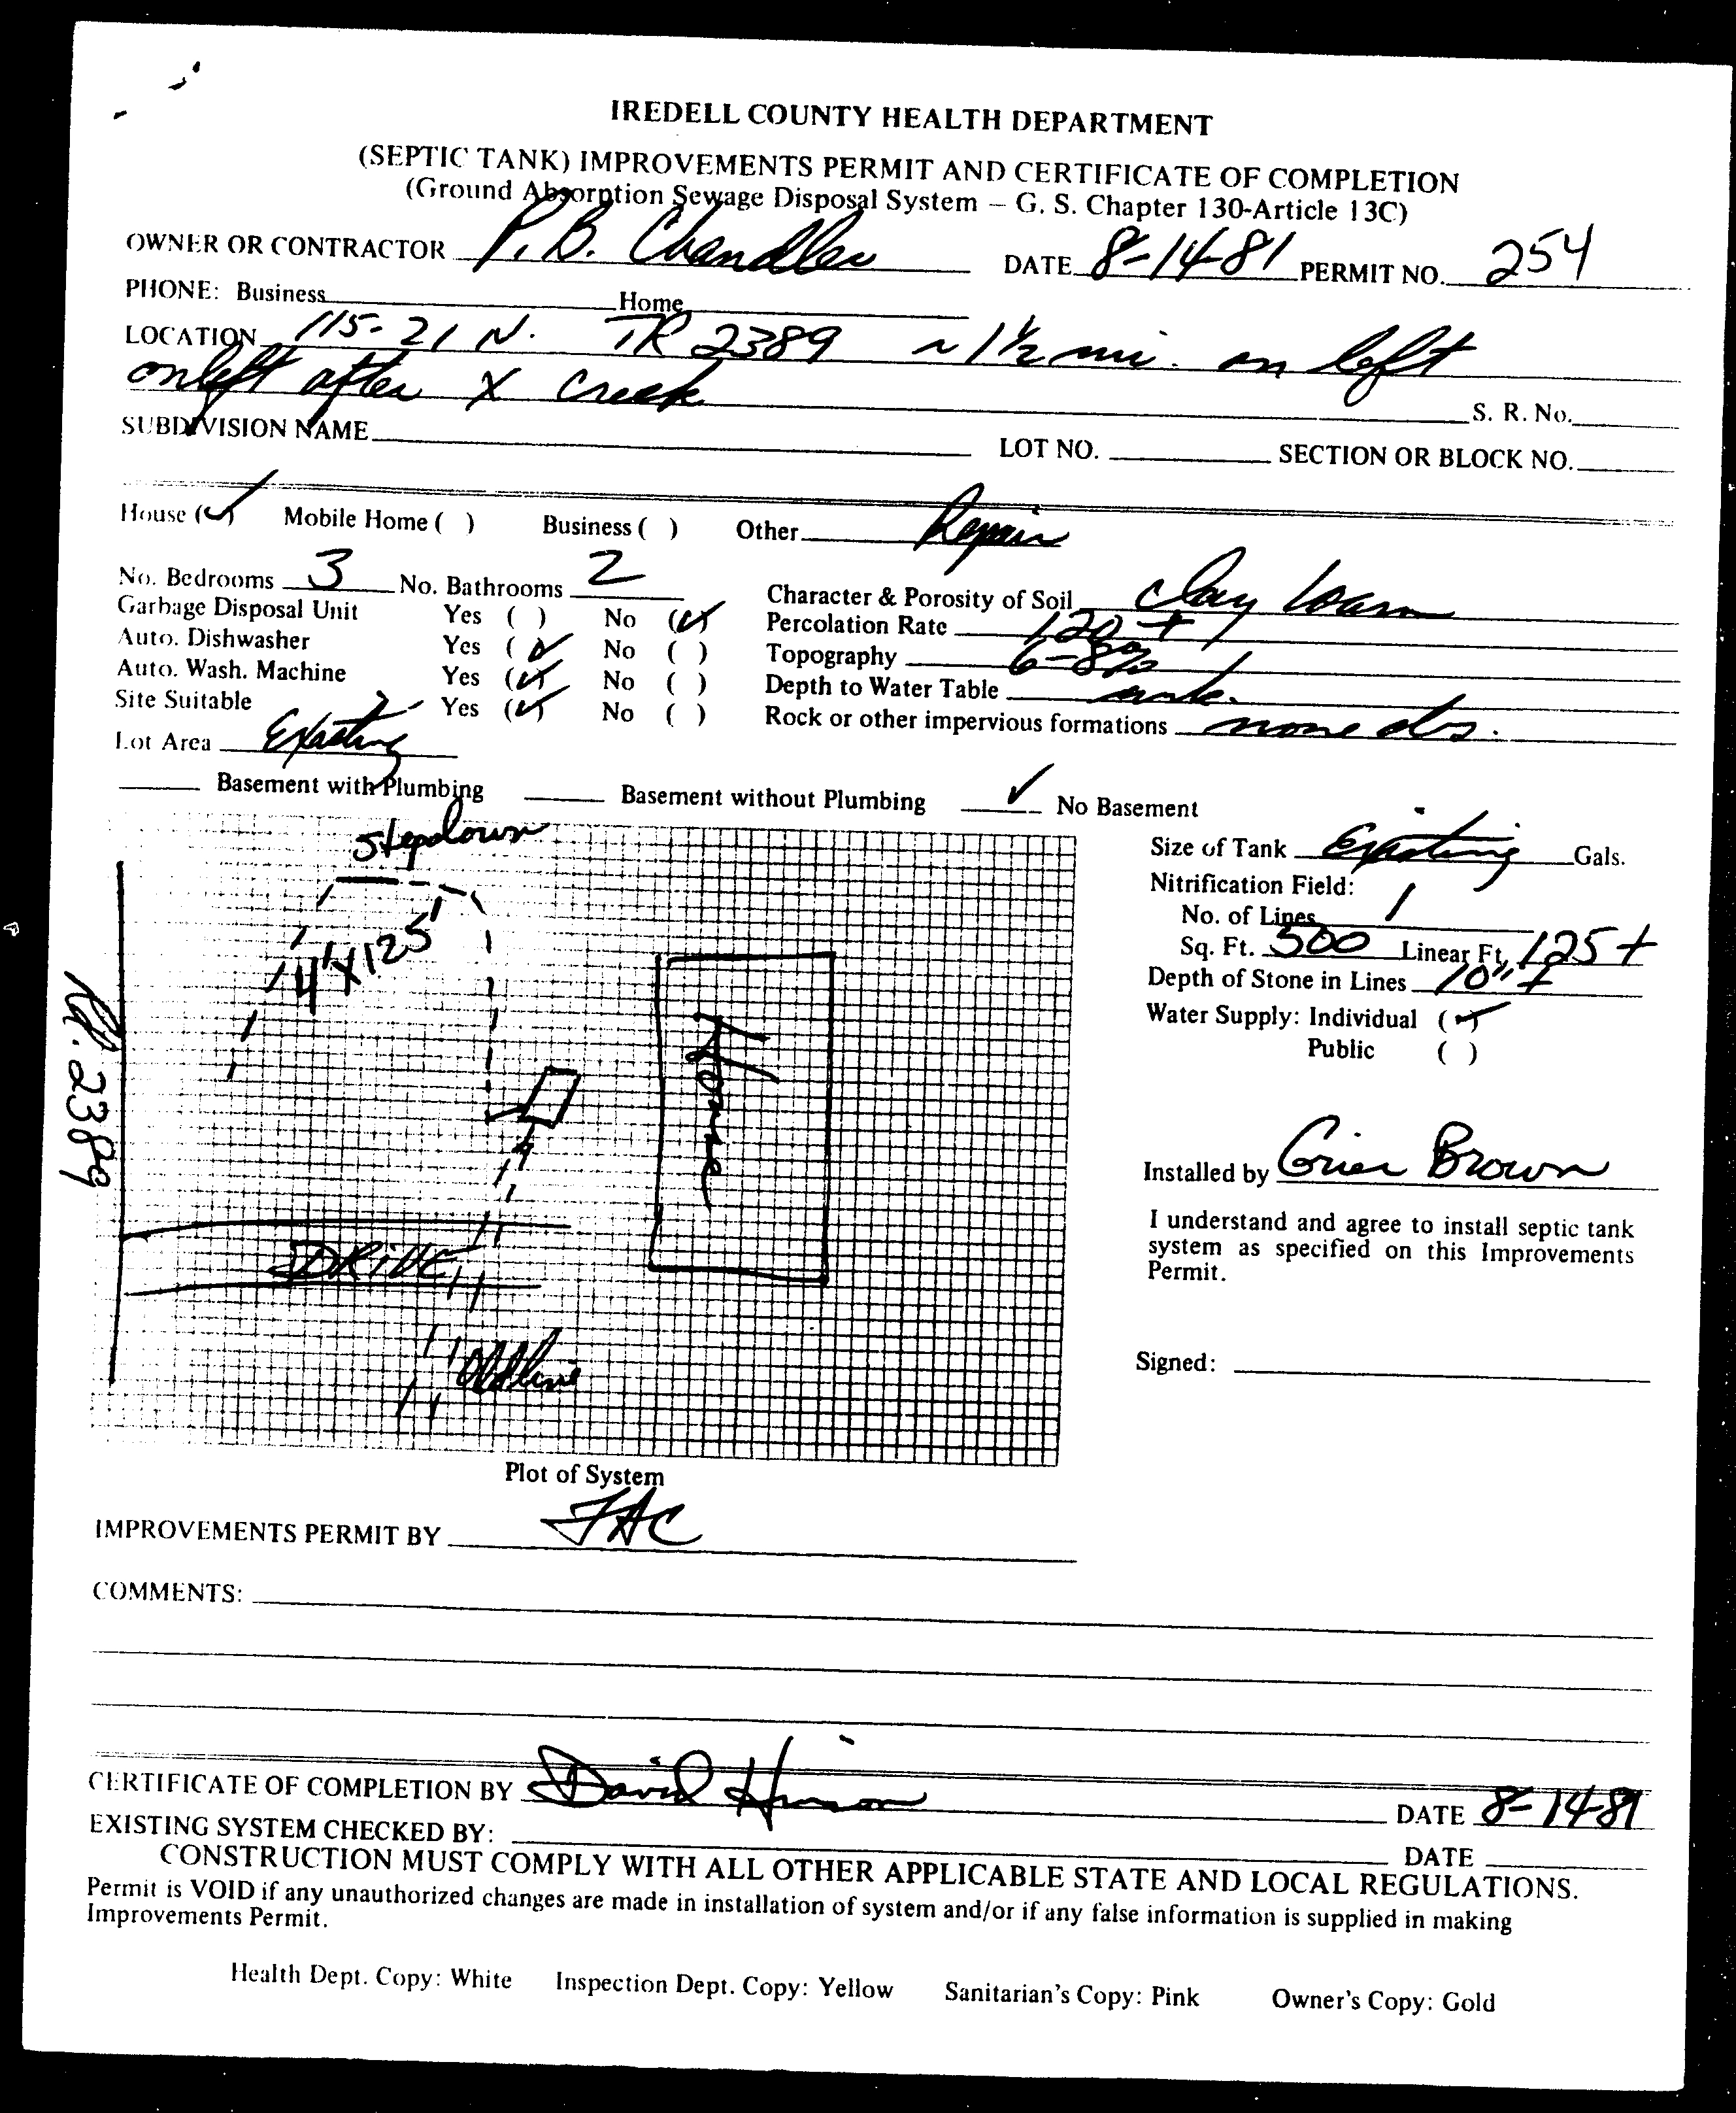 IREDELL COUNTY HEALTH DEPARTMENT
(SEPTIC TANK) IMPROVEMENTS PERMIT AND CERTIFICATE OF COMPLETION
(Ground Absorption Sewage Disposal System – G. S. Chapter 130-Article 13C)
OWNER OR CONTRACTOR P. B. Chandler DATE 8-14-81 PERMIT NO. 254
PHONE: Business Home
LOCATION 115-21 N. TR 2389 ~ 1½ mi. on left
on left after X Creek S. R. No.
SUBDIVISION NAME LOT NO. SECTION OR BLOCK NO.
House (✓) Mobile Home ( ) Business ( ) Other Repair
No. Bedrooms 3 No. Bathrooms 2 Character & Porosity of Soil Clay Loam
Garbage Disposal Unit Yes ( ) No (✓) Percolation Rate 120 +
Auto. Dishwasher Yes (✓) No ( ) Topography 6-8%
Auto. Wash. Machine Yes (✓) No ( ) Depth to Water Table unk.
Site Suitable Yes (✓) No ( ) Rock or other impervious formations none obs.
Lot Area Existing
Basement with Plumbing Basement without Plumbing ✓ No Basement
Stepdown
4'X125'
Rd. 2389
Home
DRIVE
Old line
Size of Tank Existing Gals.
Nitrification Field:
No. of Lines 1
Sq. Ft. 500 Linear Ft. 125 +
Depth of Stone in Lines 10" ±
Water Supply: Individual (✓)
Public ( )
Installed by Grier Brown
I understand and agree to install septic tank
system as specified on this Improvements
Permit.
Signed:
Plot of System
IMPROVEMENTS PERMIT BY JAC
COMMENTS:
CERTIFICATE OF COMPLETION BY David Hinson DATE 8-14-81
EXISTING SYSTEM CHECKED BY: DATE
CONSTRUCTION MUST COMPLY WITH ALL OTHER APPLICABLE STATE AND LOCAL REGULATIONS.
Permit is VOID if any unauthorized changes are made in installation of system and/or if any false information is supplied in making
Improvements Permit.
Health Dept. Copy: White Inspection Dept. Copy: Yellow Sanitarian's Copy: Pink Owner's Copy: Gold